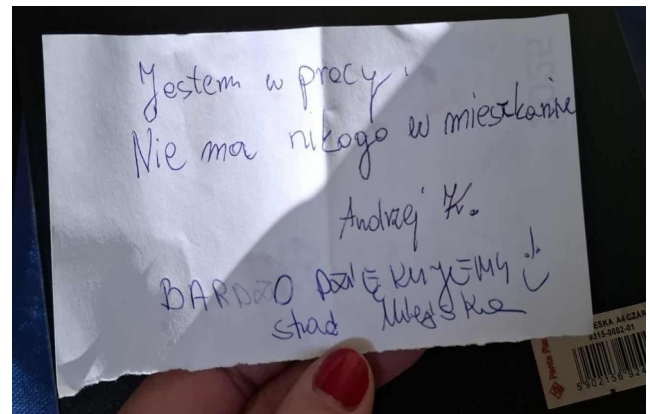 Jestem w pracy.
Nie ma nikogo w mieszkanie
Andrzej K.
BARDZO DZIĘKUJEMY :)
straż Miejska
ESKA A4 CZAR
0315-0002-01
Panta Plast